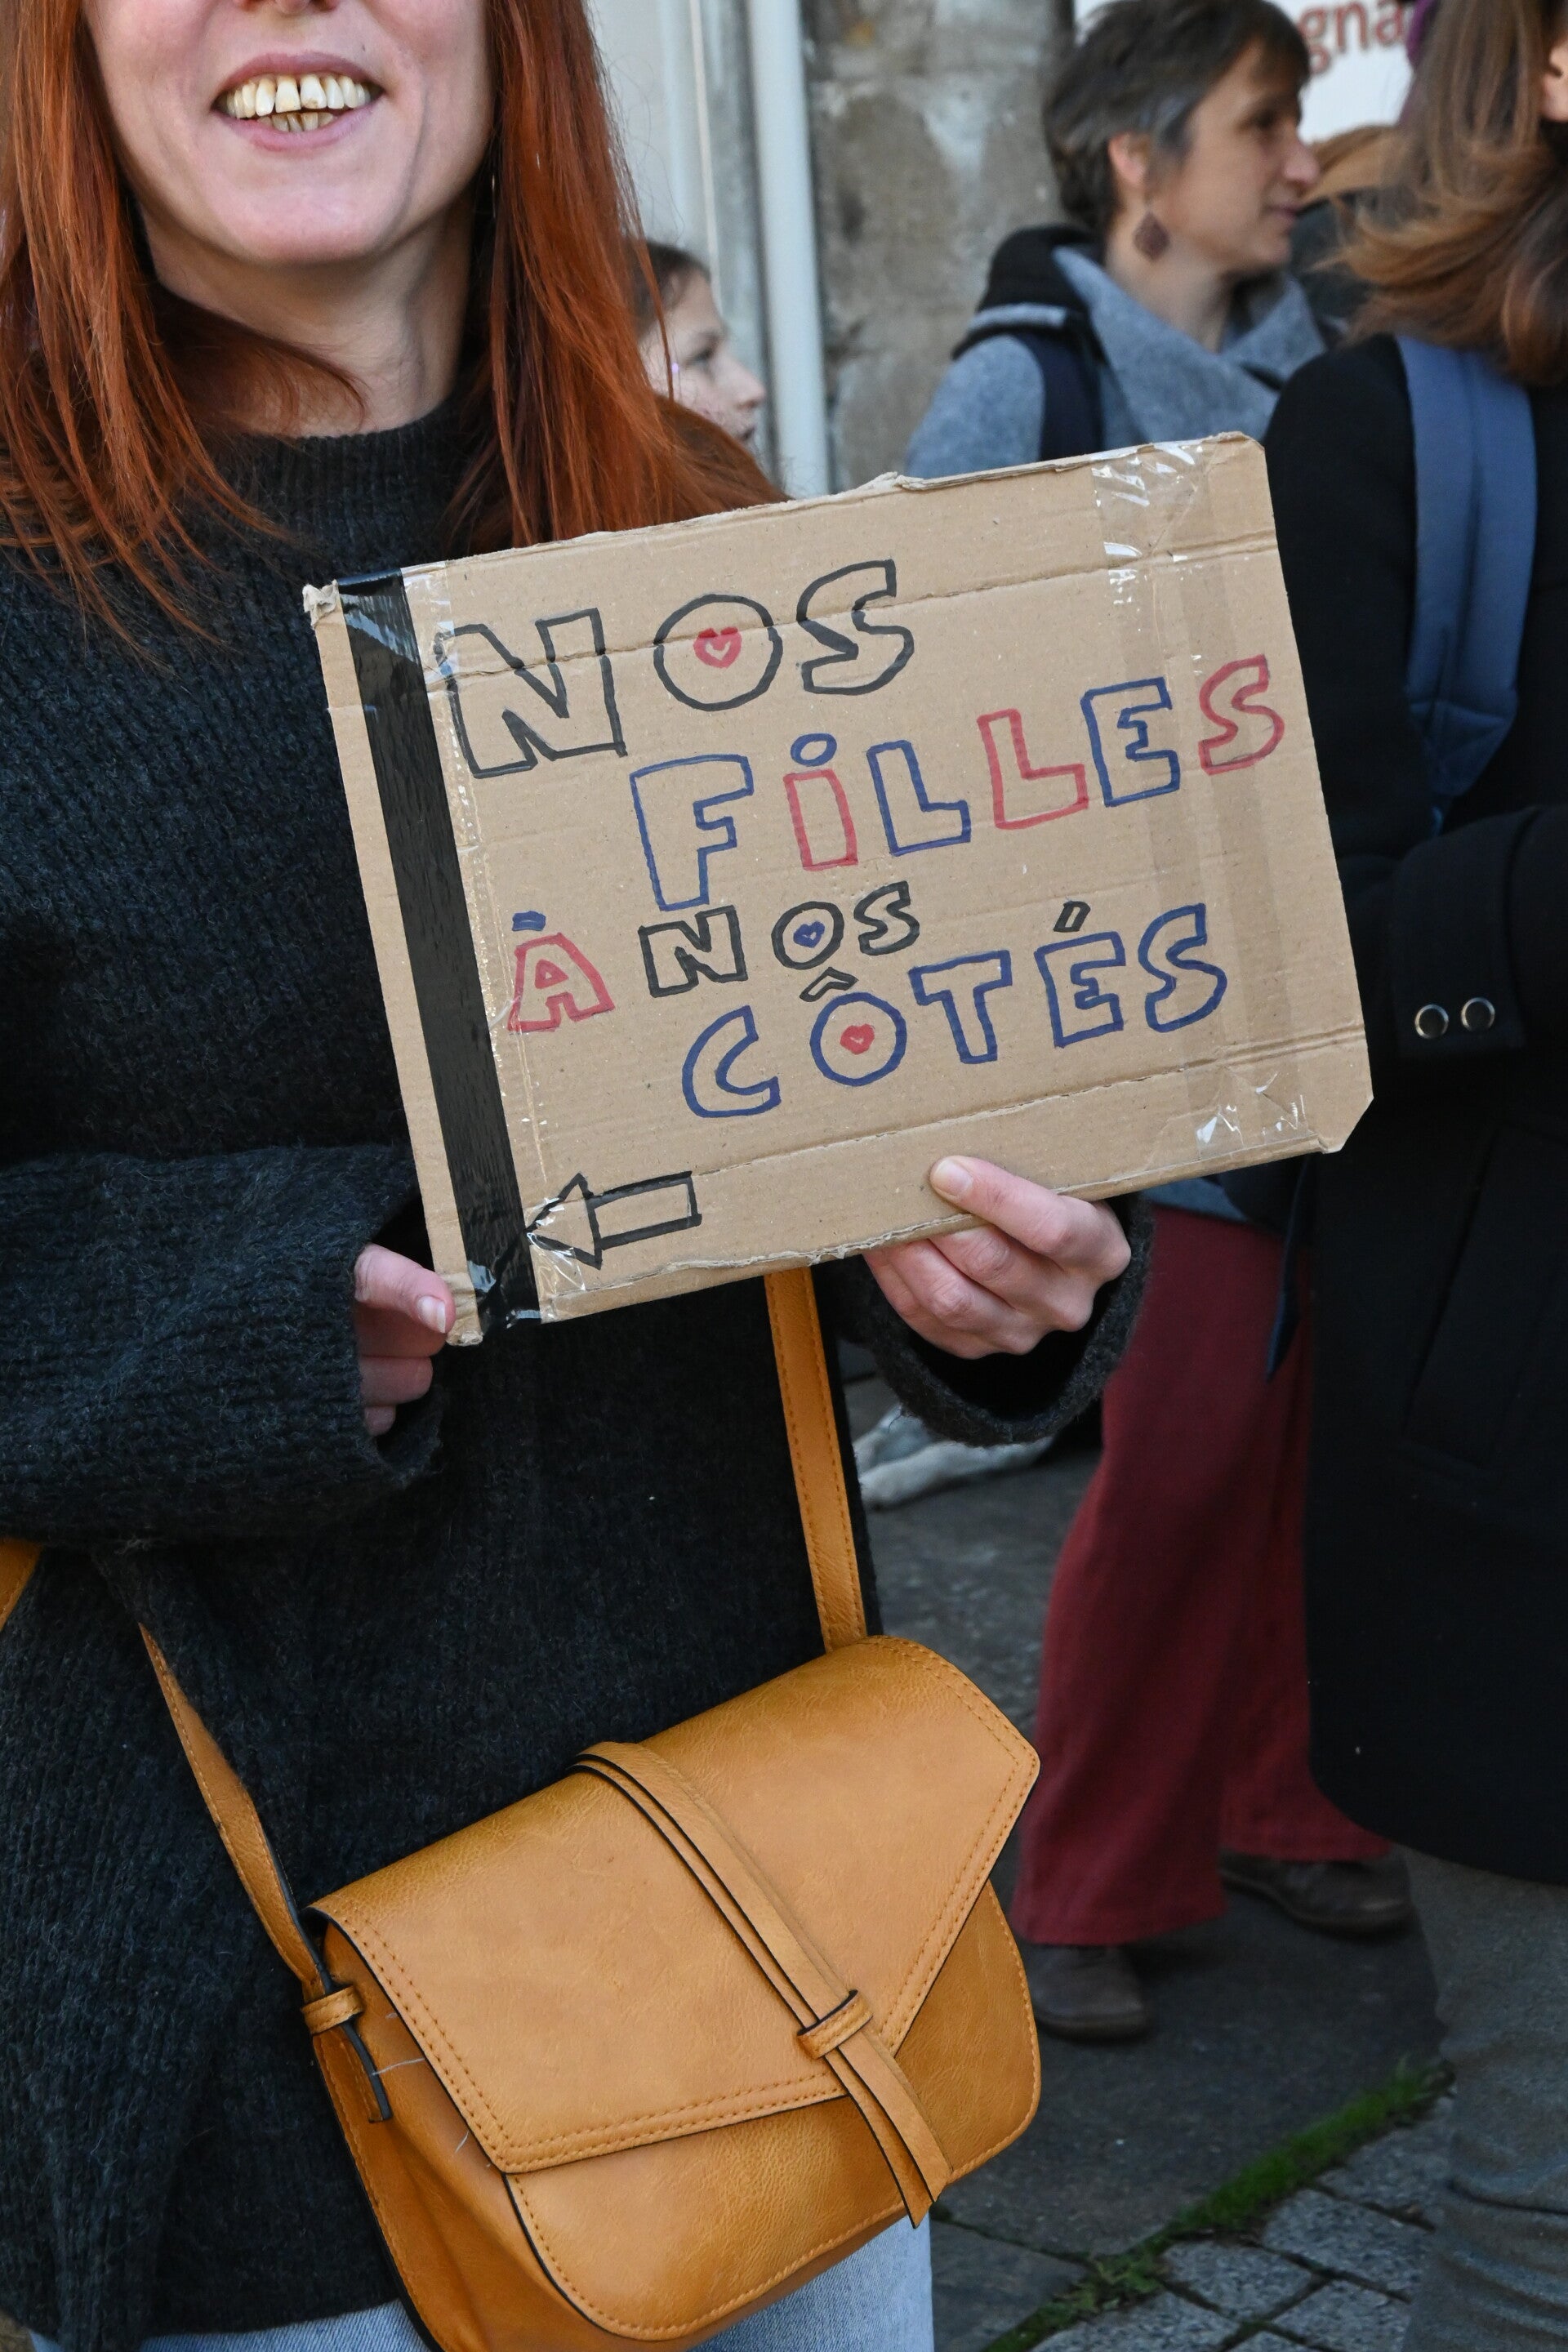 NOS
FiLLES
À NOS
CÔTÉS
gna